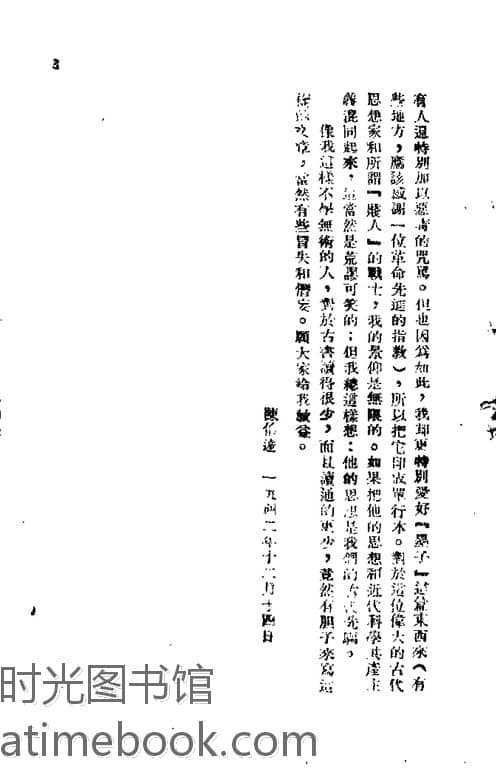 有人還特別加以惡毒的咒罵。但也因爲如此,我却更特別愛好『墨子』這篇東西來(有
些地方,應該感謝一位革命先進的指教),所以把它印成單行本。對於這位偉大的古代
思想家和所謂『賤人』的戰士,我的景仰是無限的。如果把他的思想和近代科學共產主
義混同起來,這當然是荒謬可笑的;但我總這樣想:他的思想是我們的古代先驅。
像我這樣不學無術的人,對於古書讀得很少,而且讀通的更少,竟然有胆子來寫這
文章,當然有些冒失和僭妄。願大家給我敎益。
陳伯達 一九四二年十二月十四日
3
时光图书馆
atimebook.com